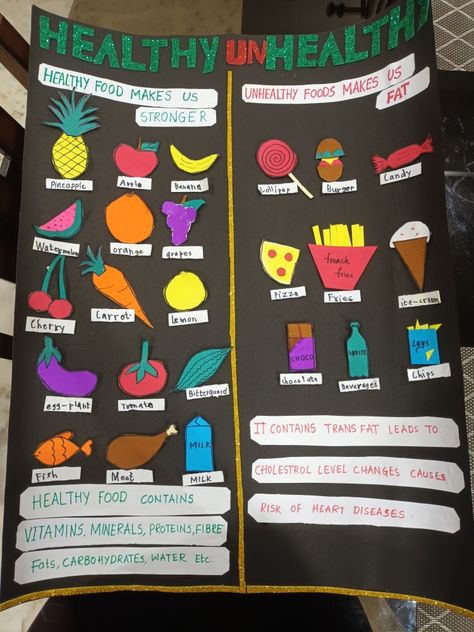 HEALTHY UNHEALTHY
HEALTHY FOOD MAKES US
STRONGER
Pineapple Apple Banana
Watermelon orange grapes
Cherry Carrot lemon
egg-plant Tomato Bitterguard
Fish Meat MILK
MILK
HEALTHY FOOD CONTAINS
VITAMINS, MINERALS, PROTEINS, FIBRE
Fats, CARBOHYDRATES, WATER Etc.
UNHEALTHY FOODS MAKES US
FAT
Lollipop Burger Candy
french
fries
Pizza Fries ice-cream
CHOCO SPRITE Lays
chocolate Beverages Chips
IT CONTAINS TRANS FAT LEADS TO
CHOLESTROL LEVEL CHANGES CAUSES
RISK OF HEART DISEASES.